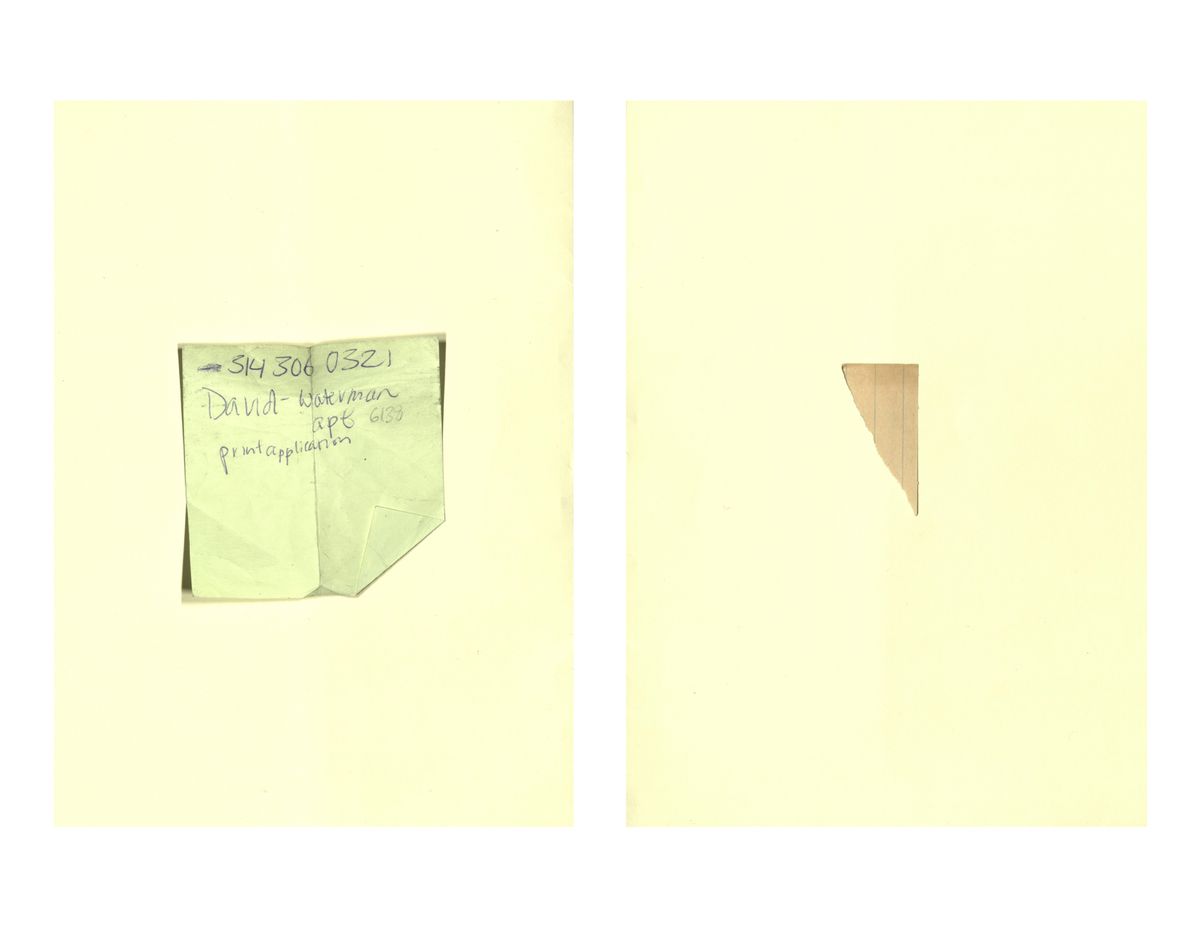 314 306 0321
David - Waterman
apt 6138
print application